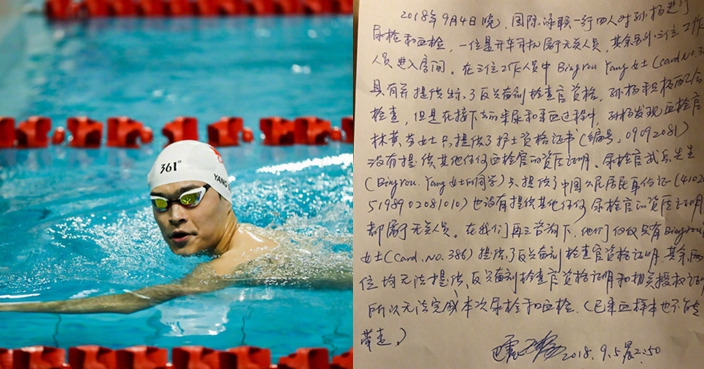 361°
YANG
2018年9月4日晚,国际泳联一行四人对孙杨进行
尿检和血检,一位是开车司机属于无关人员,其余另外三位工作
人员进入房间。在三位工作人员中Bingrou Yang女士(card.No.3
具有并提供了反兴奋剂检查官资格,孙杨积极配合
检查,但是在接下的采尿和采血过程中,孙杨发现血检官
林 女士只提供了护士资格证书(编号,09092081)
没有提供其他任何血检官的资质证明。尿检官 先生
(Bingrou Yang女士的同学)只提供了中国公民居民身份证(4102
也没有提供其他任何尿检官的资质证明
却属于无关人员。在我们再三咨询下,他们仅仅只有Bingrou
女士(Card.No.386)提供了反兴奋剂检查官资格证明,其余两
位均无法提供反兴奋剂检查官资格证明和相关授权证明
所以无法完成本次尿检和血检。(已采血样本也不能
带走。)
2018.9.5晨2:50